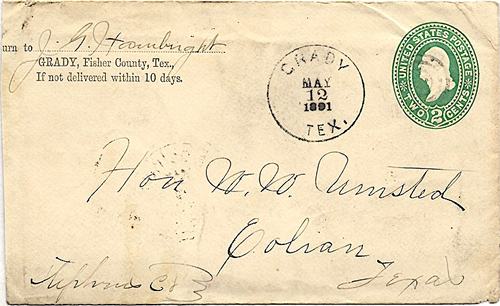 urn to J. G. Hambright
GRADY, Fisher County, Tex.,
If not delivered within 10 days.
GRADY
MAY
12
1891
TEX.
UNITED STATES POSTAGE
TWO 2 CENTS
Hon W. W. Umsted
Eolian
Stephens Co
Texas